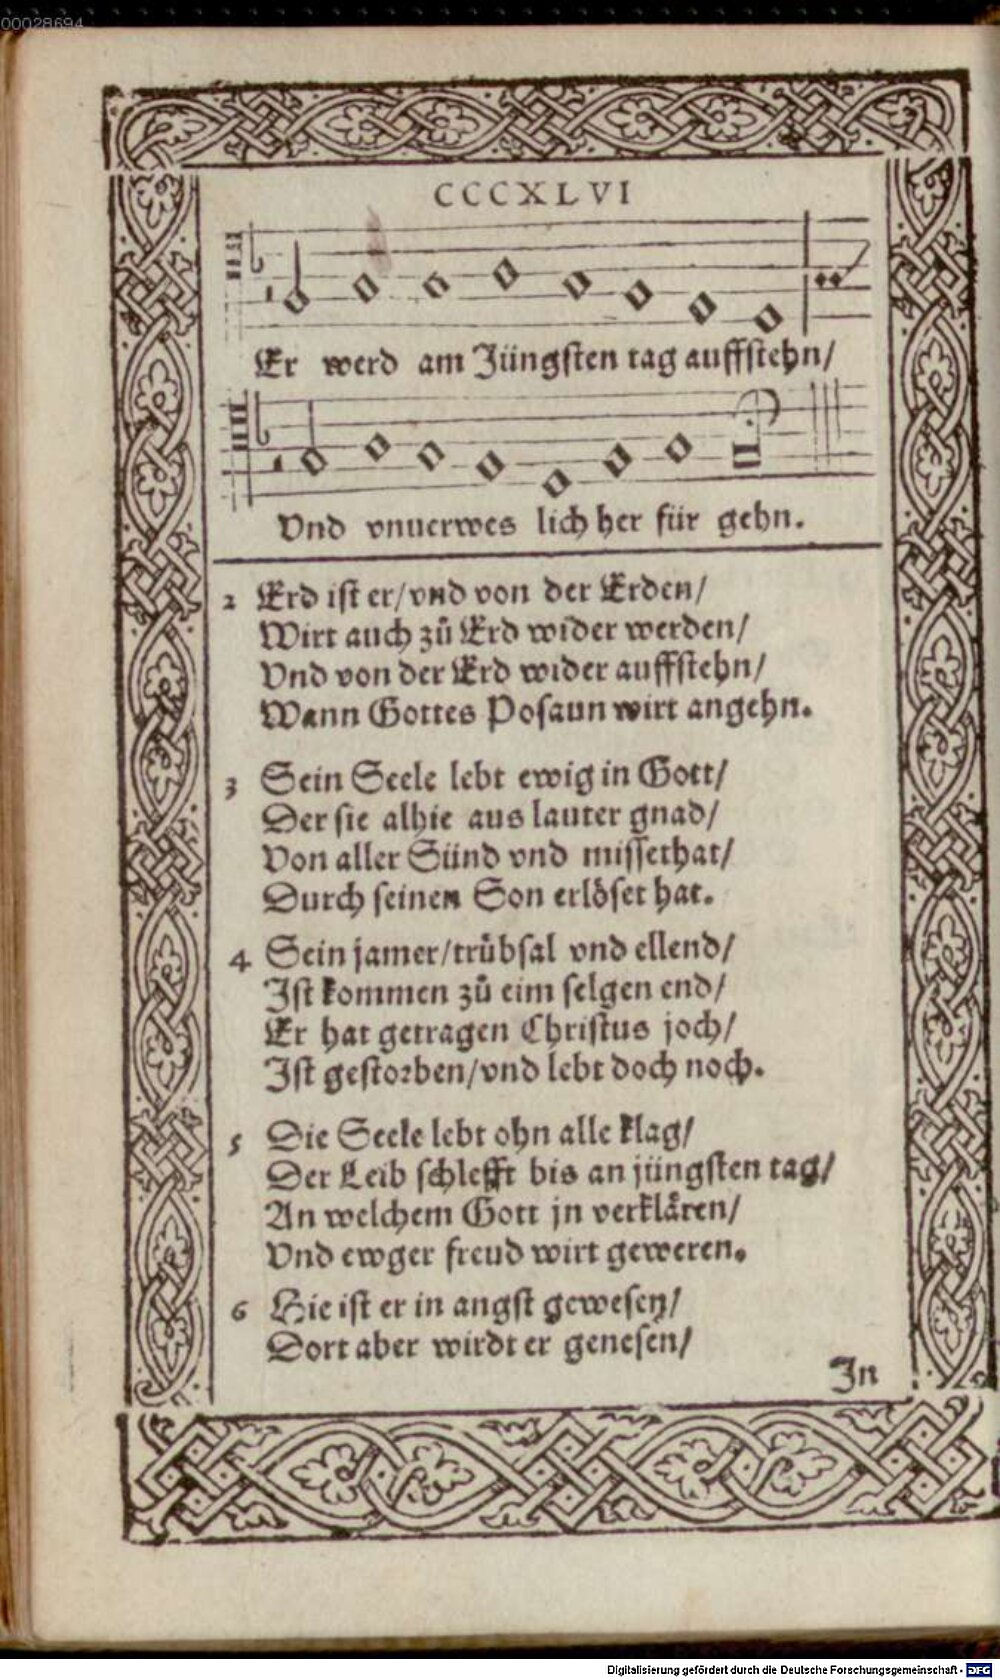 00028694
CCCXLVI
Er werd am Jüngsten tag auffstehn/
Vnd vnuerwes lich her für gehn.
2 Erd ist er/vnd von der Erden/
Wirt auch zů Erd wider werden/
Vnd von der Erd wider auffstehn/
Wann Gottes Posaun wirt angehn.
3 Sein Seele lebt ewig in Gott/
Der sie alhie aus lauter gnad/
Von aller Sünd vnd missethat/
Durch seinen Son erlöset hat.
4 Sein jamer/trůbsal vnd ellend/
Ist kommen zů eim selgen end/
Er hat getragen Christus joch/
Ist gestorben/vnd lebt doch noch.
5 Die Seele lebt ohn alle klag/
Der Leib schlefft bis an jüngsten tag/
An welchem Gott jn verklären/
Vnd ewger freud wirt geweren.
6 Hie ist er in angst gewesen/
Dort aber wirdt er genesen/
In
Digitalisierung gefördert durch die Deutsche Forschungsgemeinschaft - DFG